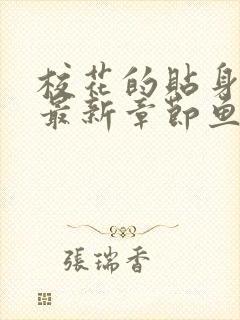 校花的貼身
最新章節魚
張瑞香